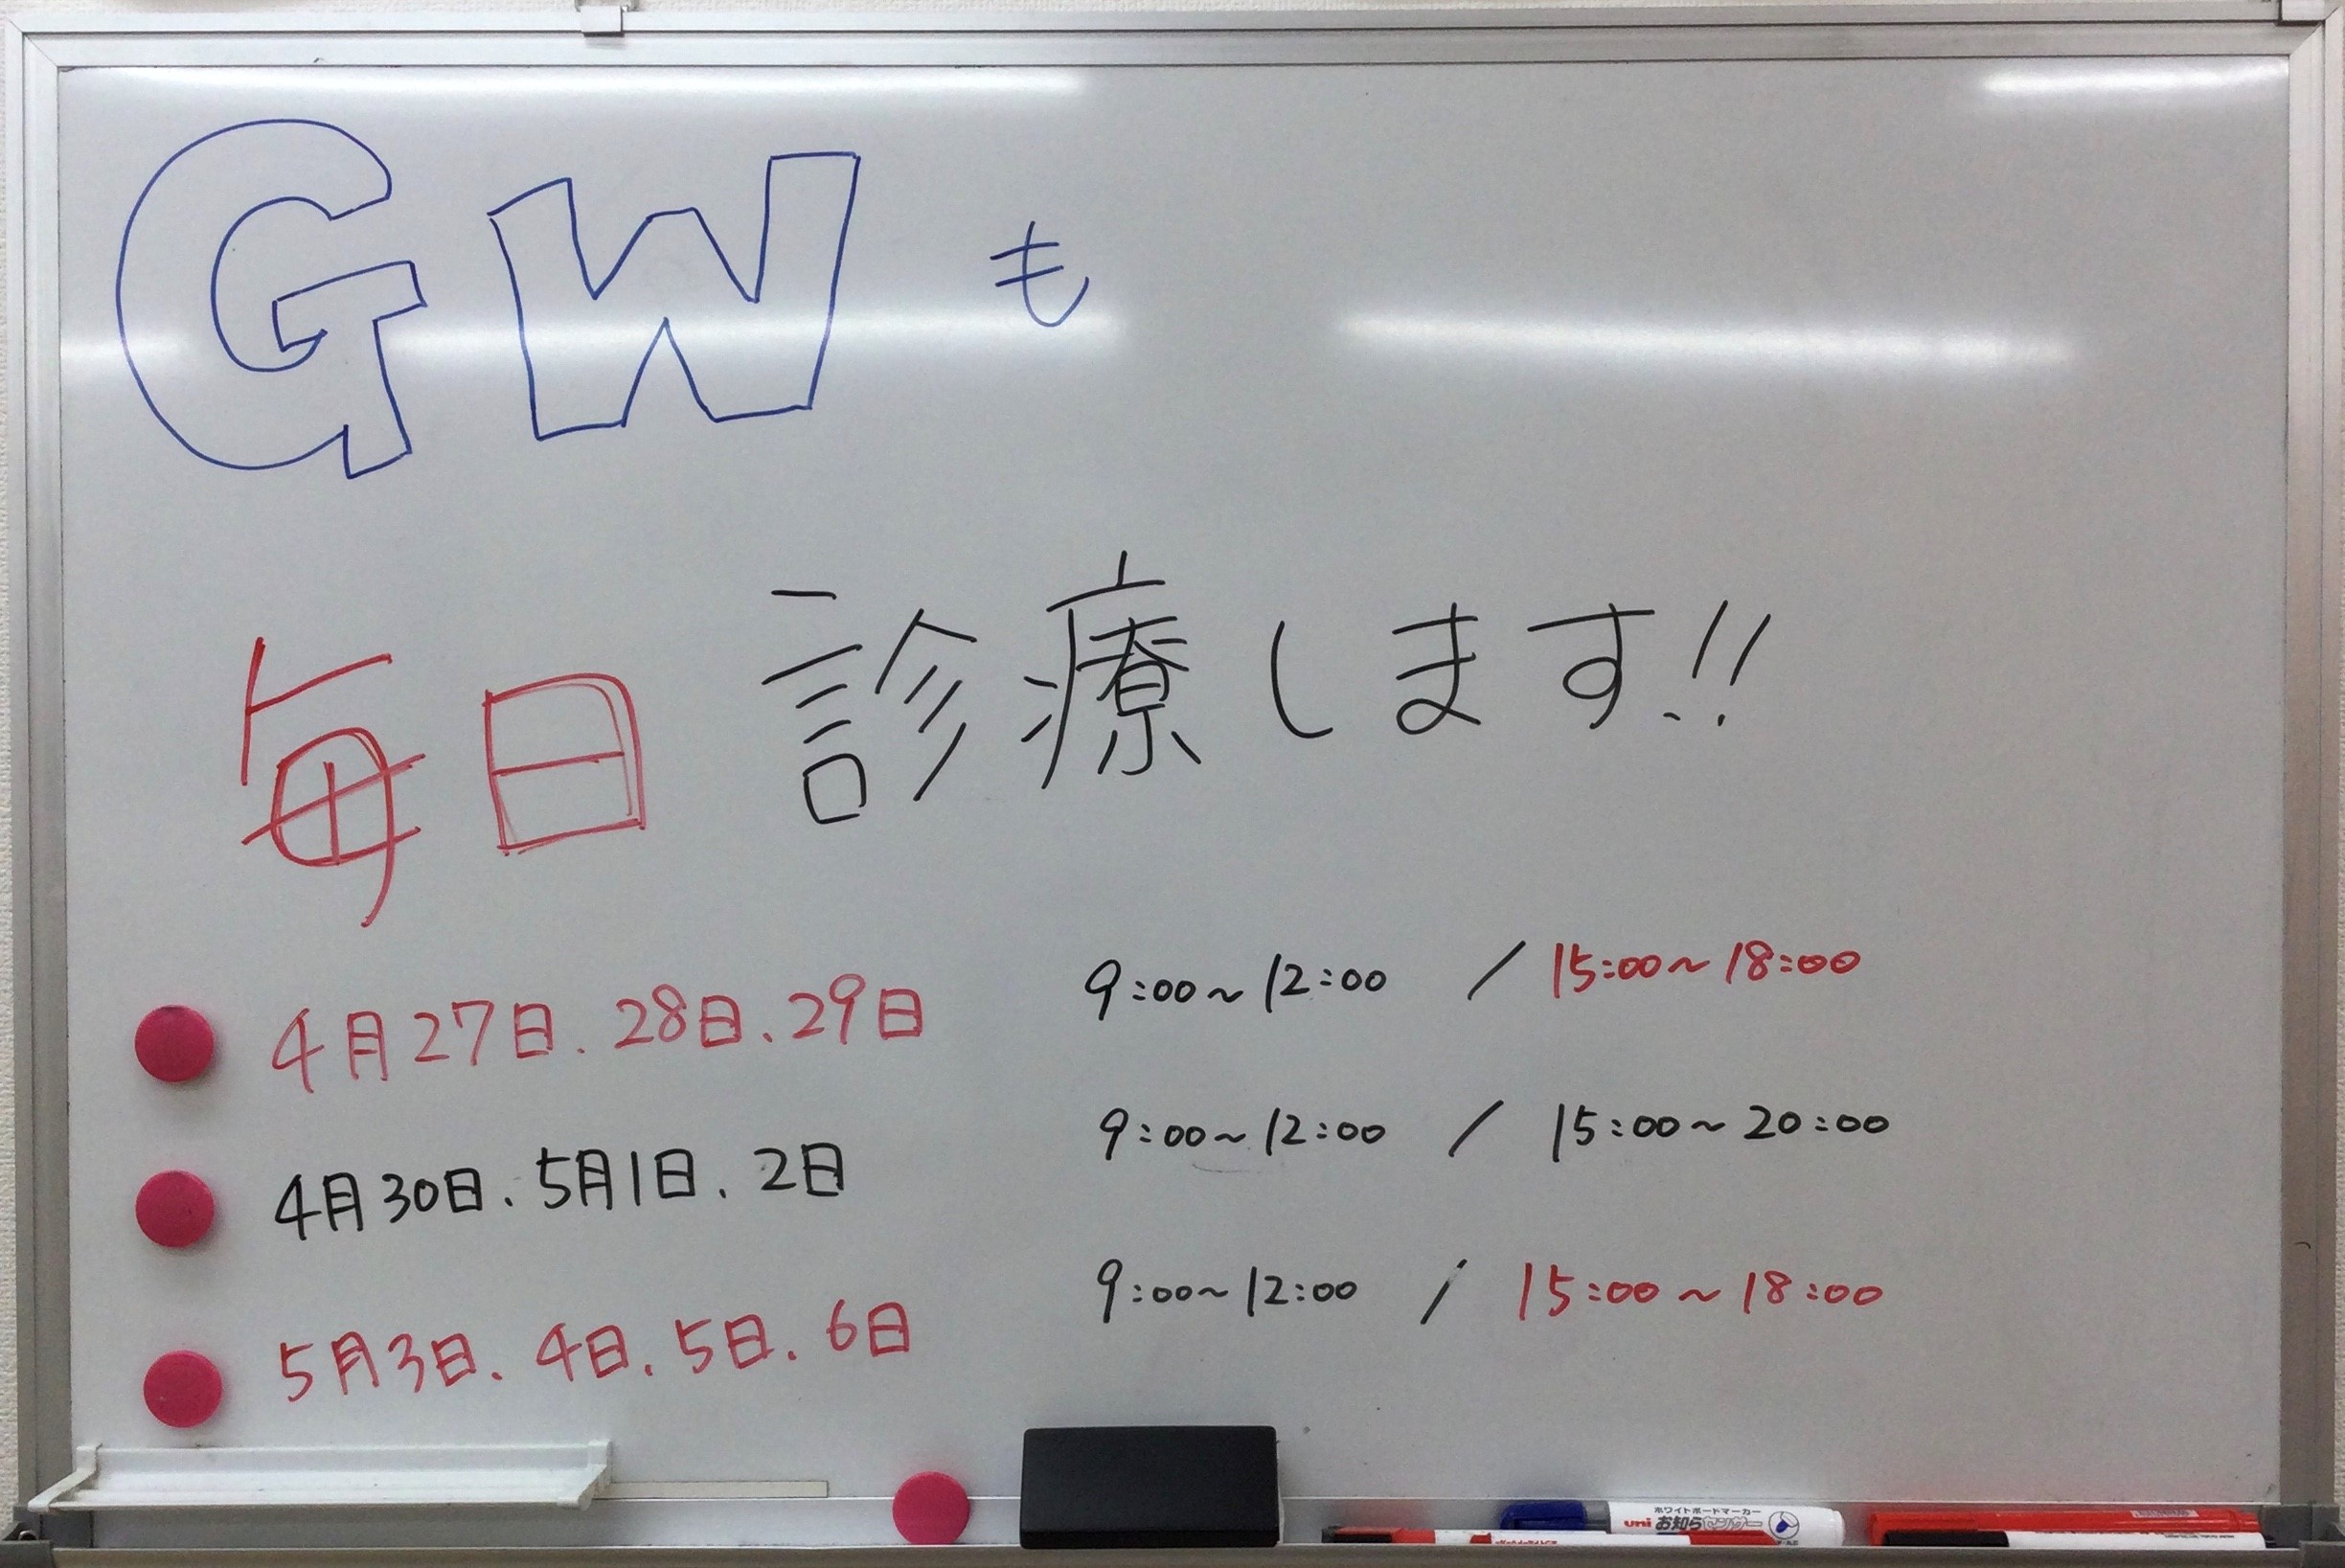 GWも
毎日 診療します!!
4月27日.28日.29日 9:00～12:00 / 15:00～18:00
4月30日.5月1日.2日 9:00～12:00 / 15:00～20:00
5月3日.4日.5日.6日 9:00～12:00 / 15:00～18:00
ホワイトボードマーカー
uni お知らセンサー